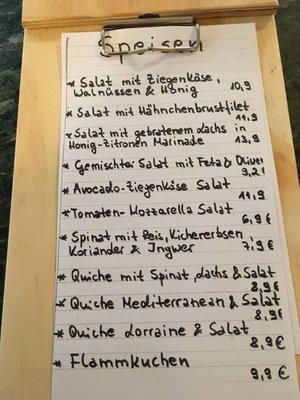 Speisen
* Salat mit Ziegenkäse,
Walnüssen & Honig 10,9
* Salat mit Hähnchenbrustfilet
11,9
* Salat mit gebratenem dachs in
Honig-Zitronen Marinade 13,9
* Gemischter Salat mit Feta & Oliven
9,2
* Avocado-Ziegenkäse Salat
11,9
* Tomaten-Mozzarella Salat
6,9 €
* Spinat mit Reis, Kichererbsen
Koriander & Ingwer 7,9 €
* Quiche mit Spinat, dachs & Salat
8,9 €
* Quiche Mediterranean & Salat
8,9 €
* Quiche Lorraine & Salat
8,9 €
* Flammkuchen
9,9 €